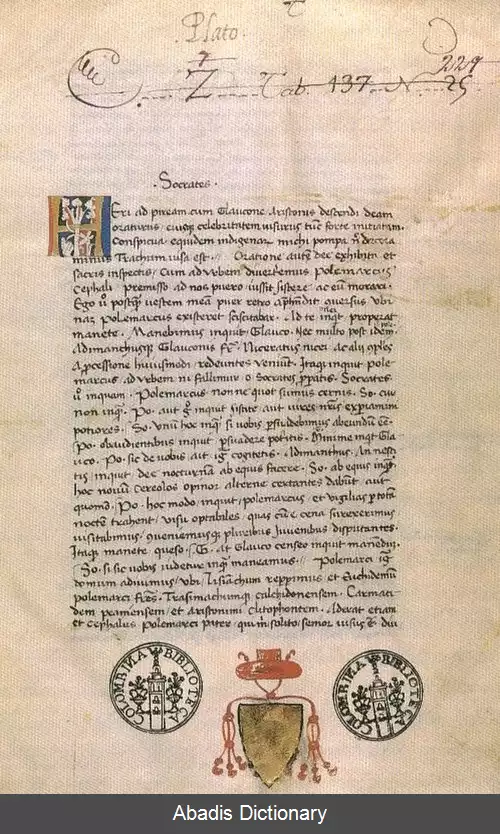 Plato.
Z Tab. 137. N. 25
229
Socrates.
Heri ad piream cum Glaucone Aristonis descendi deam
oraturus, eiusq celebritatem visurus tuc forte initiatam.
Conspicua equidem indigenar michi pompa
Trachum visa est. Oratione aute dec exhibita et
sacris inspectis, Cum ad urbem diverteremus Polemarcus
Cephali premisso ad nos puero iussit sistere ac eum morari.
Ego postq vestem mea puer retro
naz Polemarcus existeret sciscitabar. Ad te inqt properat
manete. Manebimus inquit Glauco. Nec multo post idem
Adimanthusq Glauconis Niceratus nicei ac alii
apcessione huiusmodi redeuntes veniunt. Itaq inquit pole
marcus ad urbem ni fallimur o Socrates Socrates
inquam. Po. non ne quot sumus cernis. So. cur
non inq. Po. aut inquit sistite aut vires experiamini
potiores. So. Unu hoc si vobis psuadebimus abeundu
Po. obaudientibus inquit psuadere potitis. Minime inqt Gla
uco. Po. sic de vobis aut cogitetis. Adimanthus. An nesci
tis, inquit dec nocturna ab equis facere. So. ab equis
hoc novu cereolos opinor alterne certantes dabunt aut
quomo. Po. hoc modo, inquit, polemarcus et vigilias p tota
nocte trahent, visu optabiles, quas cum e cena surrexerimus
visitabimus, pluribus iuvenibus disputantes.
Itaq manete queso. G. at Glauco censeo inquit manendu.
So. si sic vobis videtur maneamus. Polemarci
domum adivimus, ubi Lisiam repimus et Euthidemu
polemarci Trasimachumq calchidonensem. Carmati
dem peaniensem, et Aristonimi clitophontem. Aderat etiam
et Cephalus polemarci pater, qui solito senior visus e diu
COLOMBINA BIBLIOTECA
COLOMBINA BIBLIOTECA
Abadis Dictionary